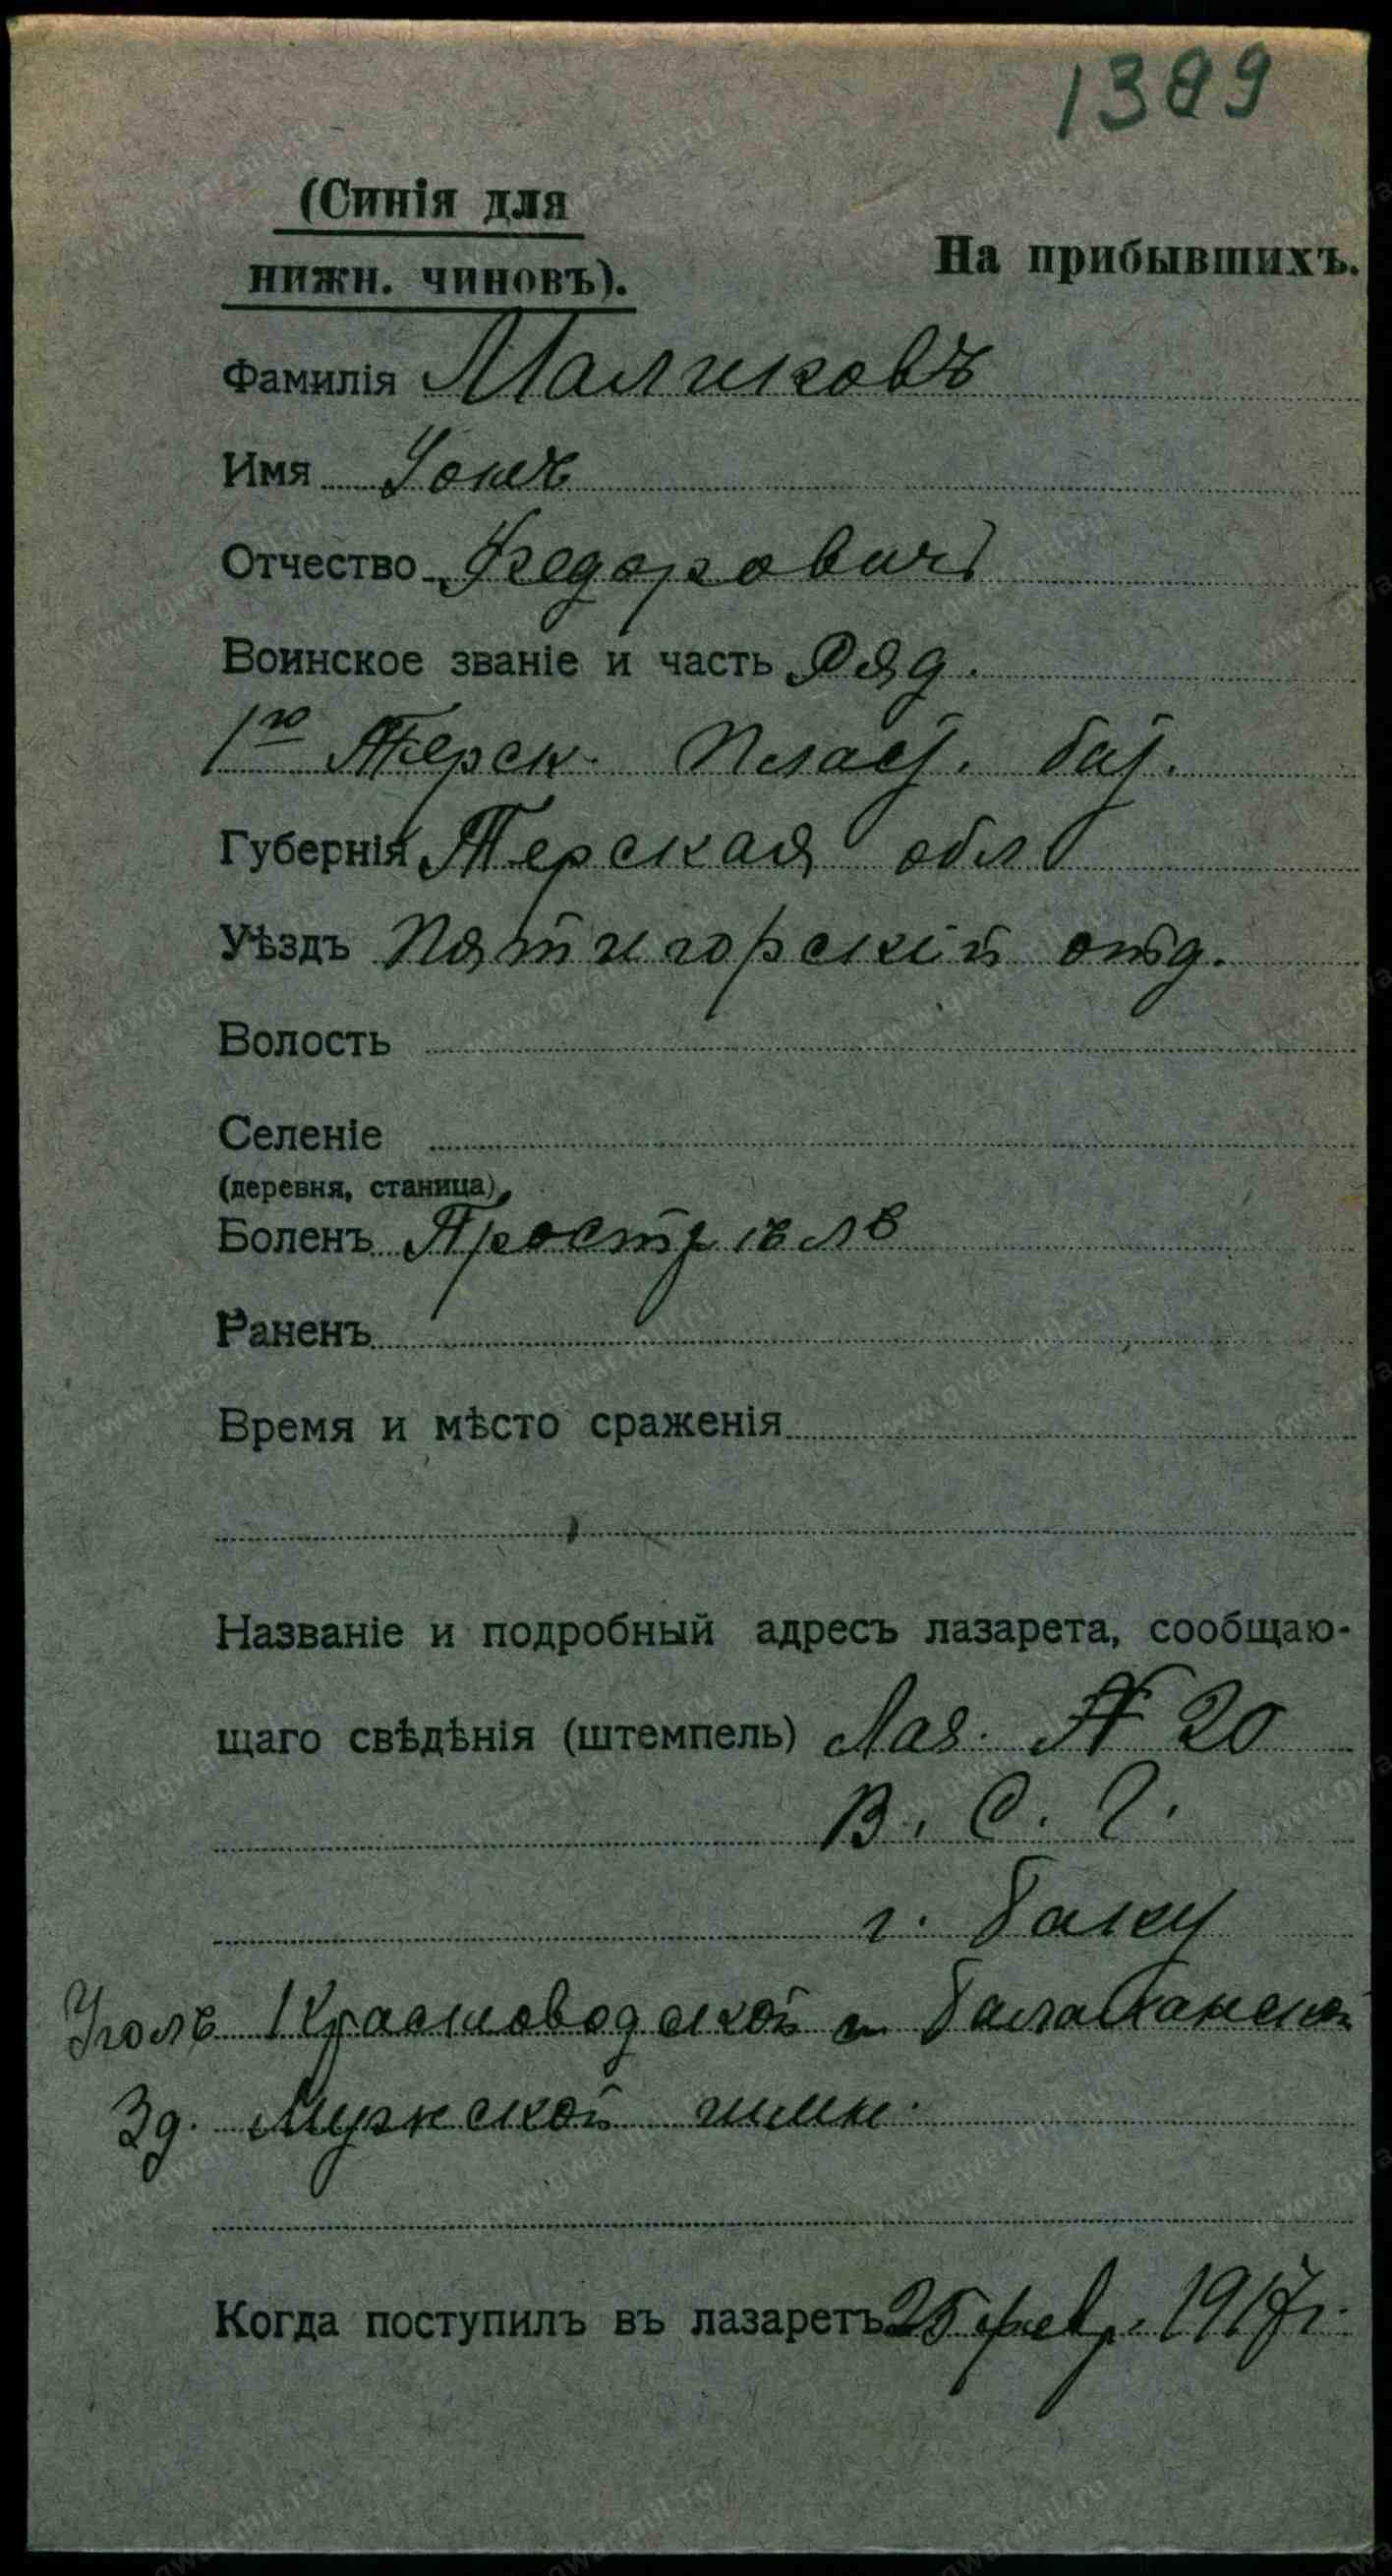 1389
(Синія для
нижн. чиновъ).
На прибывшихъ.
Фамилія Маликовъ
Имя
Отчество Федорович
Воинское званіе и часть Ряд.
1го Терск. Пласт. бат.
Губернія Терская обл
Уѣздъ Пятигорскій отд.
Волость
Селеніе
(деревня, станица)
Боленъ Прострѣлъ
Раненъ
Время и мѣсто сраженія
Названіе и подробный адресъ лазарета, сообщаю-
щаго свѣдѣнія (штемпель) Лаз. № 20
В. С. Г.
г. Баку
Уголъ Красноводской и Балаханской
Зд. Мужской гимн.
Когда поступилъ въ лазаретъ 25 февр. 1917 г.